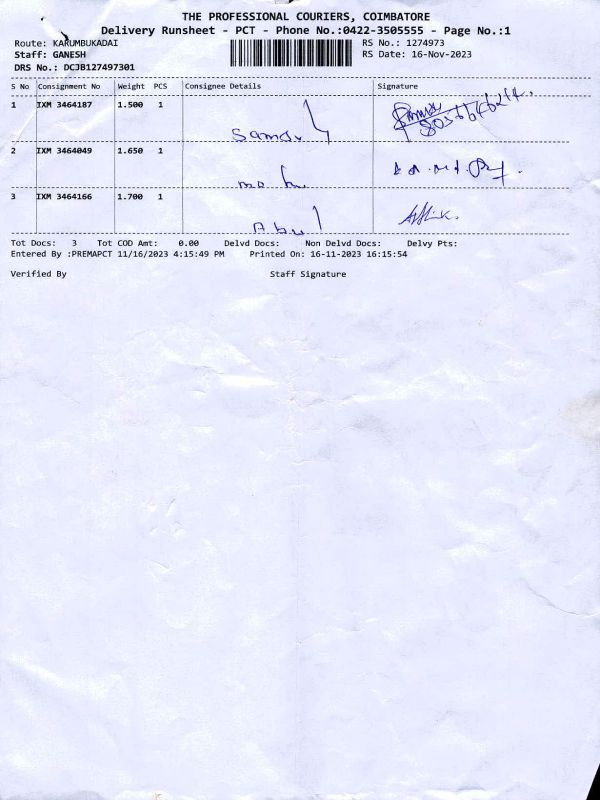 THE PROFESSIONAL COURIERS, COIMBATORE
Delivery Runsheet - PCT - Phone No.:0422-3505555 - Page No.:1
Route: KARUMBUKADAI RS No.: 1274973
Staff: GANESH RS Date: 16-Nov-2023
DRS No.: DCJB127497301
S No Consignment No Weight PCS Consignee Details Signature
1 IXM 3464187 1.500 1
2 IXM 3464049 1.650 1
3 IXM 3464166 1.700 1
Abul
Tot Docs: 3 Tot COD Amt: 0.00 Delvd Docs: Non Delvd Docs: Delvy Pts:
Entered By :PREMAPCT 11/16/2023 4:15:49 PM Printed On: 16-11-2023 16:15:54
Verified By Staff Signature